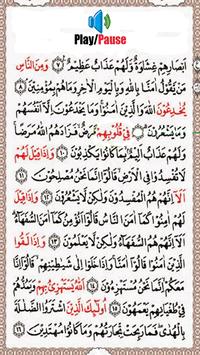 Play/Pause
أَبْصَٰرِهِمْ غِشَٰوَةٌ وَلَهُمْ عَذَابٌ عَظِيمٌ ٧ وَمِنَ ٱلنَّاسِ
مَن يَقُولُ ءَامَنَّا بِٱللَّهِ وَبِٱلْيَوْمِ ٱلْءَاخِرِ وَمَا هُم بِمُؤْمِنِينَ ٨
يُخَٰدِعُونَ ٱللَّهَ وَٱلَّذِينَ ءَامَنُوا۟ وَمَا يَخْدَعُونَ إِلَّآ أَنفُسَهُمْ
وَمَا يَشْعُرُونَ ٩ فِى قُلُوبِهِم مَّرَضٌ فَزَادَهُمُ ٱللَّهُ مَرَضًا
وَلَهُمْ عَذَابٌ أَلِيمٌۢ بِمَا كَانُوا۟ يَكْذِبُونَ ١٠ وَإِذَا قِيلَ لَهُمْ
لَا تُفْسِدُوا۟ فِى ٱلْأَرْضِ قَالُوٓا۟ إِنَّمَا نَحْنُ مُصْلِحُونَ ١١
أَلَآ إِنَّهُمْ هُمُ ٱلْمُفْسِدُونَ وَلَٰكِن لَّا يَشْعُرُونَ ١٢ وَإِذَا قِيلَ
لَهُمْ ءَامِنُوا۟ كَمَآ ءَامَنَ ٱلنَّاسُ قَالُوٓا۟ أَنُؤْمِنُ كَمَآ ءَامَنَ ٱلسُّفَهَآءُ
أَلَآ إِنَّهُمْ هُمُ ٱلسُّفَهَآءُ وَلَٰكِن لَّا يَعْلَمُونَ ١٣ وَإِذَا لَقُوا۟
ٱلَّذِينَ ءَامَنُوا۟ قَالُوٓا۟ ءَامَنَّا وَإِذَا خَلَوْا۟ إِلَىٰ شَيَٰطِينِهِمْ قَالُوٓا۟
إِنَّا مَعَكُمْ إِنَّمَا نَحْنُ مُسْتَهْزِءُونَ ١٤ ٱللَّهُ يَسْتَهْزِئُ بِهِمْ وَيَمُدُّهُمْ
فِى طُغْيَٰنِهِمْ يَعْمَهُونَ ١٥ أُو۟لَٰٓئِكَ ٱلَّذِينَ ٱشْتَرَوُا۟ ٱلضَّلَٰلَةَ
بِٱلْهُدَىٰ فَمَا رَبِحَت تِّجَٰرَتُهُمْ وَمَا كَانُوا۟ مُهْتَدِينَ ١٦